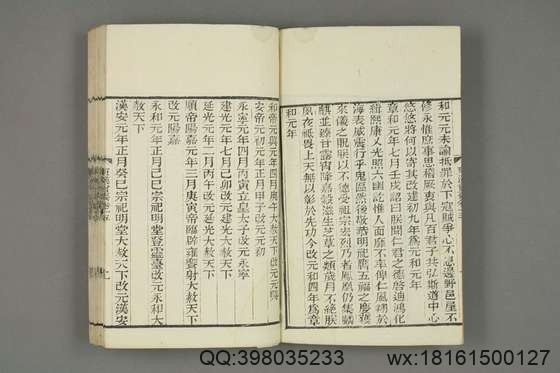 和元元未諭抵罪於下寇賊爭心不息邊野邑屋不
修永惟庶事思稽厥衷與凡百君子共弘斯道中心
悠悠將何以寄其改建初九年爲元和元年
章和元年七月壬戌詔曰朕聞仁君之德啓迪鴻化
緝熙康乂光照六幽訖惟人面靡不率俾仁風翔於
海表威霆行乎鬼區然後敬恭明祀膺五福之慶獲
來儀之貺朕以不德受祖宗宏烈乃者鳳凰仍集麒
麟並臻甘露宵降嘉穀滋生芝草之類歲月不絕朕
夙夜祗畏上天無以彰於先功今改元和四年爲章
和元年
和帝元興元年四月庚午大赦天下改元元興
安帝永初元年正月甲子改元永初
永寧元年四月丙寅立皇太子改元永寧
建光元年七月己卯改元建光大赦天下
延光元年三月丙午改元延光大赦天下
順帝陽嘉元年三月庚寅帝臨辟雍饗射大赦天下
改元陽嘉
永和元年正月己巳宗祀明堂登靈臺改元永和大
赦天下
漢安元年正月癸巳宗祀明堂大赦天下改元漢安
QQ:398035233
wx:18161500127